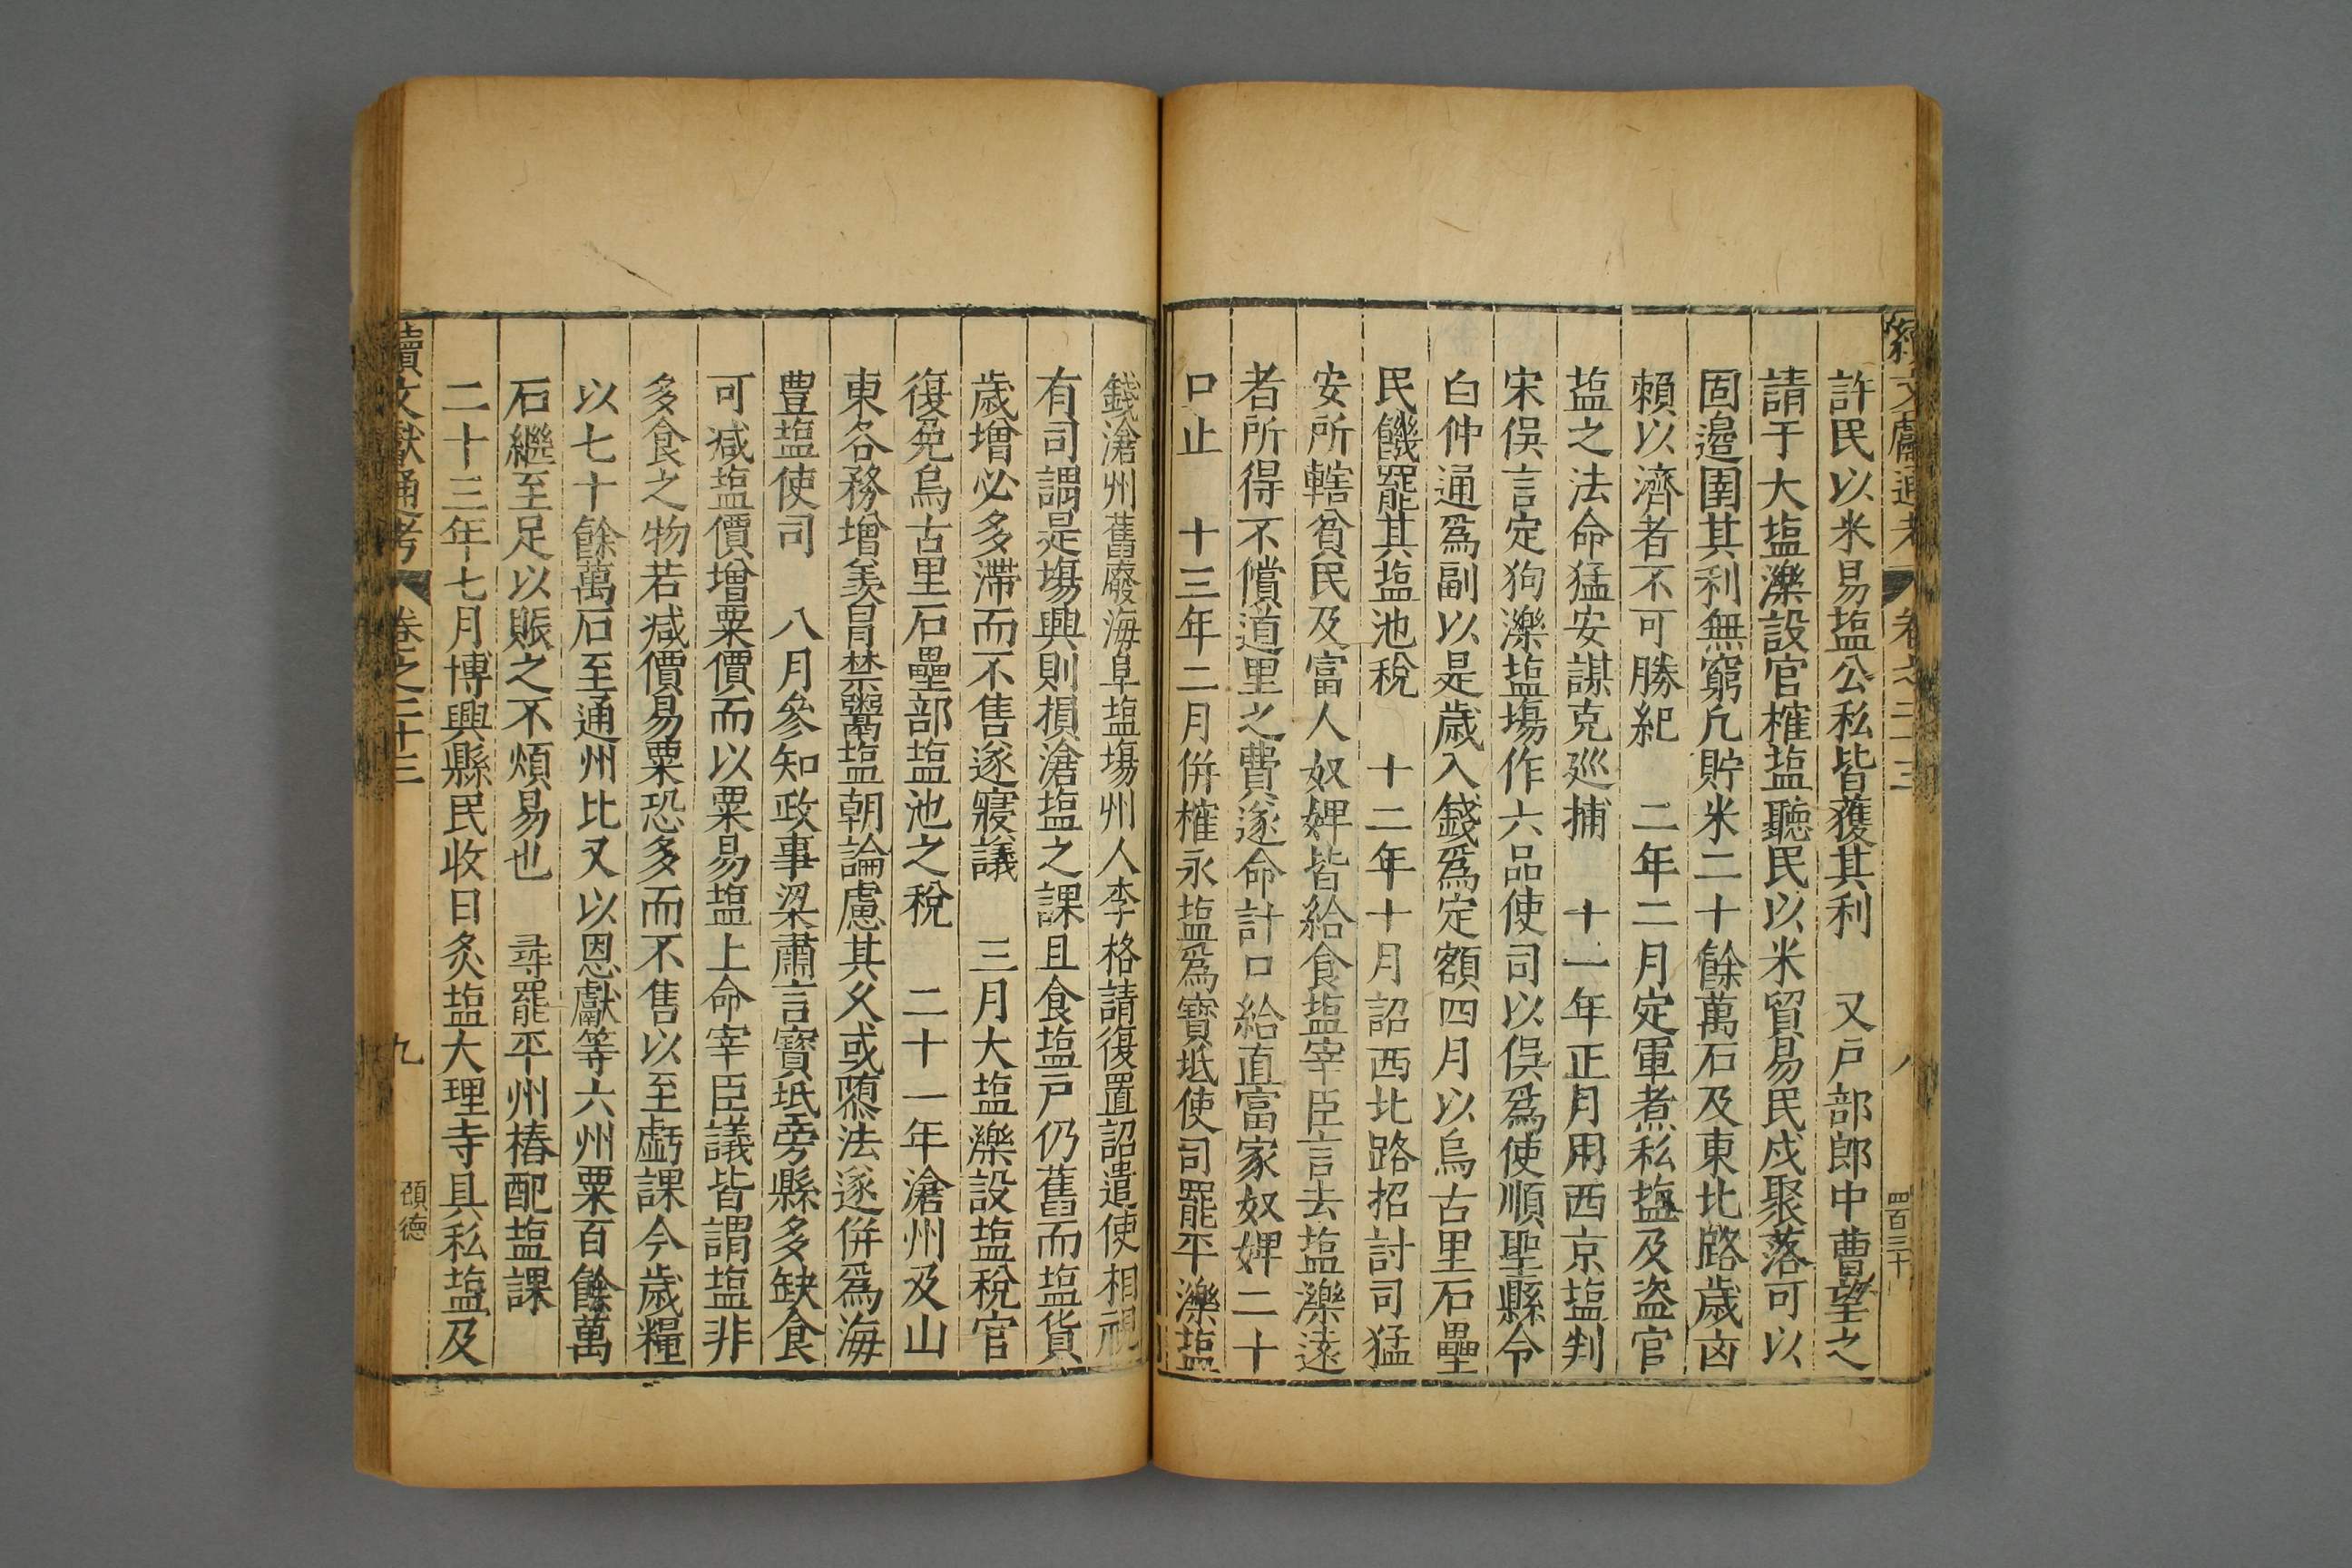 續文獻通考 卷之二十三 八 四百三十
許民以米易塩公私皆獲其利 又戸部郎中曹望之
請于大塩濼設官榷塩聽民以米貿易民戍聚落可以
固邊圉其利無窮凢貯米二十餘萬石及東北路歲凶
賴以濟者不可勝紀 二年二月定軍煮私塩及盗官
塩之法命猛安謀克廵捕 十一年正月用西京塩判
宋俁言定狗濼塩塲作六品使司以俁爲使順聖縣令
白仲通爲副以是歲入錢爲定額四月以烏古里石壘
民饑罷其塩池稅 十二年十月詔西北路招討司猛
安所轄貧民及富人奴婢皆給食塩宰臣言去塩濼遠
者所得不償道里之費遂命計口給直富家奴婢二十
口止 十三年二月併榷永塩爲寶坻使司罷平濼塩
錢滄州舊廢海阜塩塲州人李格請復置詔遣使相視
有司謂是塲興則損滄塩之課且食塩戸仍舊而塩貨
歲增必多滯而不售遂寢議 三月大塩濼設塩稅官
復免烏古里石壘部塩池之稅 二十一年滄州及山
東各務增羨冐禁鬻塩朝論慮其久或隳法遂併爲海
豊塩使司 八月參知政事梁肅言寶坻旁縣多缺食
可减塩價增粟價而以粟易塩上命宰臣議皆謂塩非
多食之物若减價易粟恐多而不售以至虧課今歲糧
以七十餘萬石至通州比又以恩獻等六州粟百餘萬
石繼至足以賑之不煩易也 尋罷平州樁配塩課
二十三年七月博興縣民收日炙塩大理寺具私塩及
續文獻通考 卷之二十三 九 德